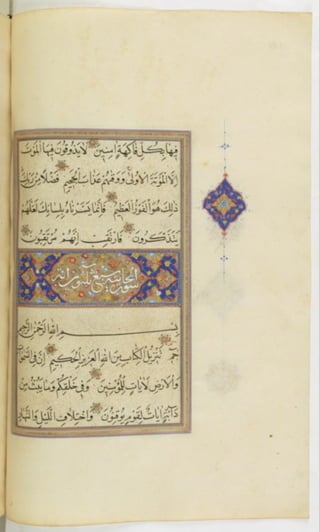 فِيهَا بِكُلِّ فَاكِهَةٍ آمِنِينَ لَا يَذُوقُونَ فِيهَا الْمَوْتَ
إِلَّا الْمَوْتَةَ الْأُولَىٰ وَوَقَاهُمْ عَذَابَ الْجَحِيمِ فَضْلًا مِنْ رَبِّكَ
ذَٰلِكَ هُوَ الْفَوْزُ الْعَظِيمُ فَإِنَّمَا يَسَّرْنَاهُ بِلِسَانِكَ لَعَلَّهُمْ
يَتَذَكَّرُونَ فَارْتَقِبْ إِنَّهُمْ مُرْتَقِبُونَ
سورة الجاثية سبع وثلثون آية
بِسْمِ اللَّهِ الرَّحْمَٰنِ الرَّحِيمِ
حم تَنْزِيلُ الْكِتَابِ مِنَ اللَّهِ الْعَزِيزِ الْحَكِيمِ إِنَّ فِي السَّمَوَاتِ
وَالْأَرْضِ لَآيَاتٍ لِلْمُؤْمِنِينَ وَفِي خَلْقِكُمْ وَمَا يَبُثُّ مِنْ
دَابَّةٍ آيَاتٌ لِقَوْمٍ يُوقِنُونَ وَاخْتِلَافِ اللَّيْلِ وَالنَّهَارِ